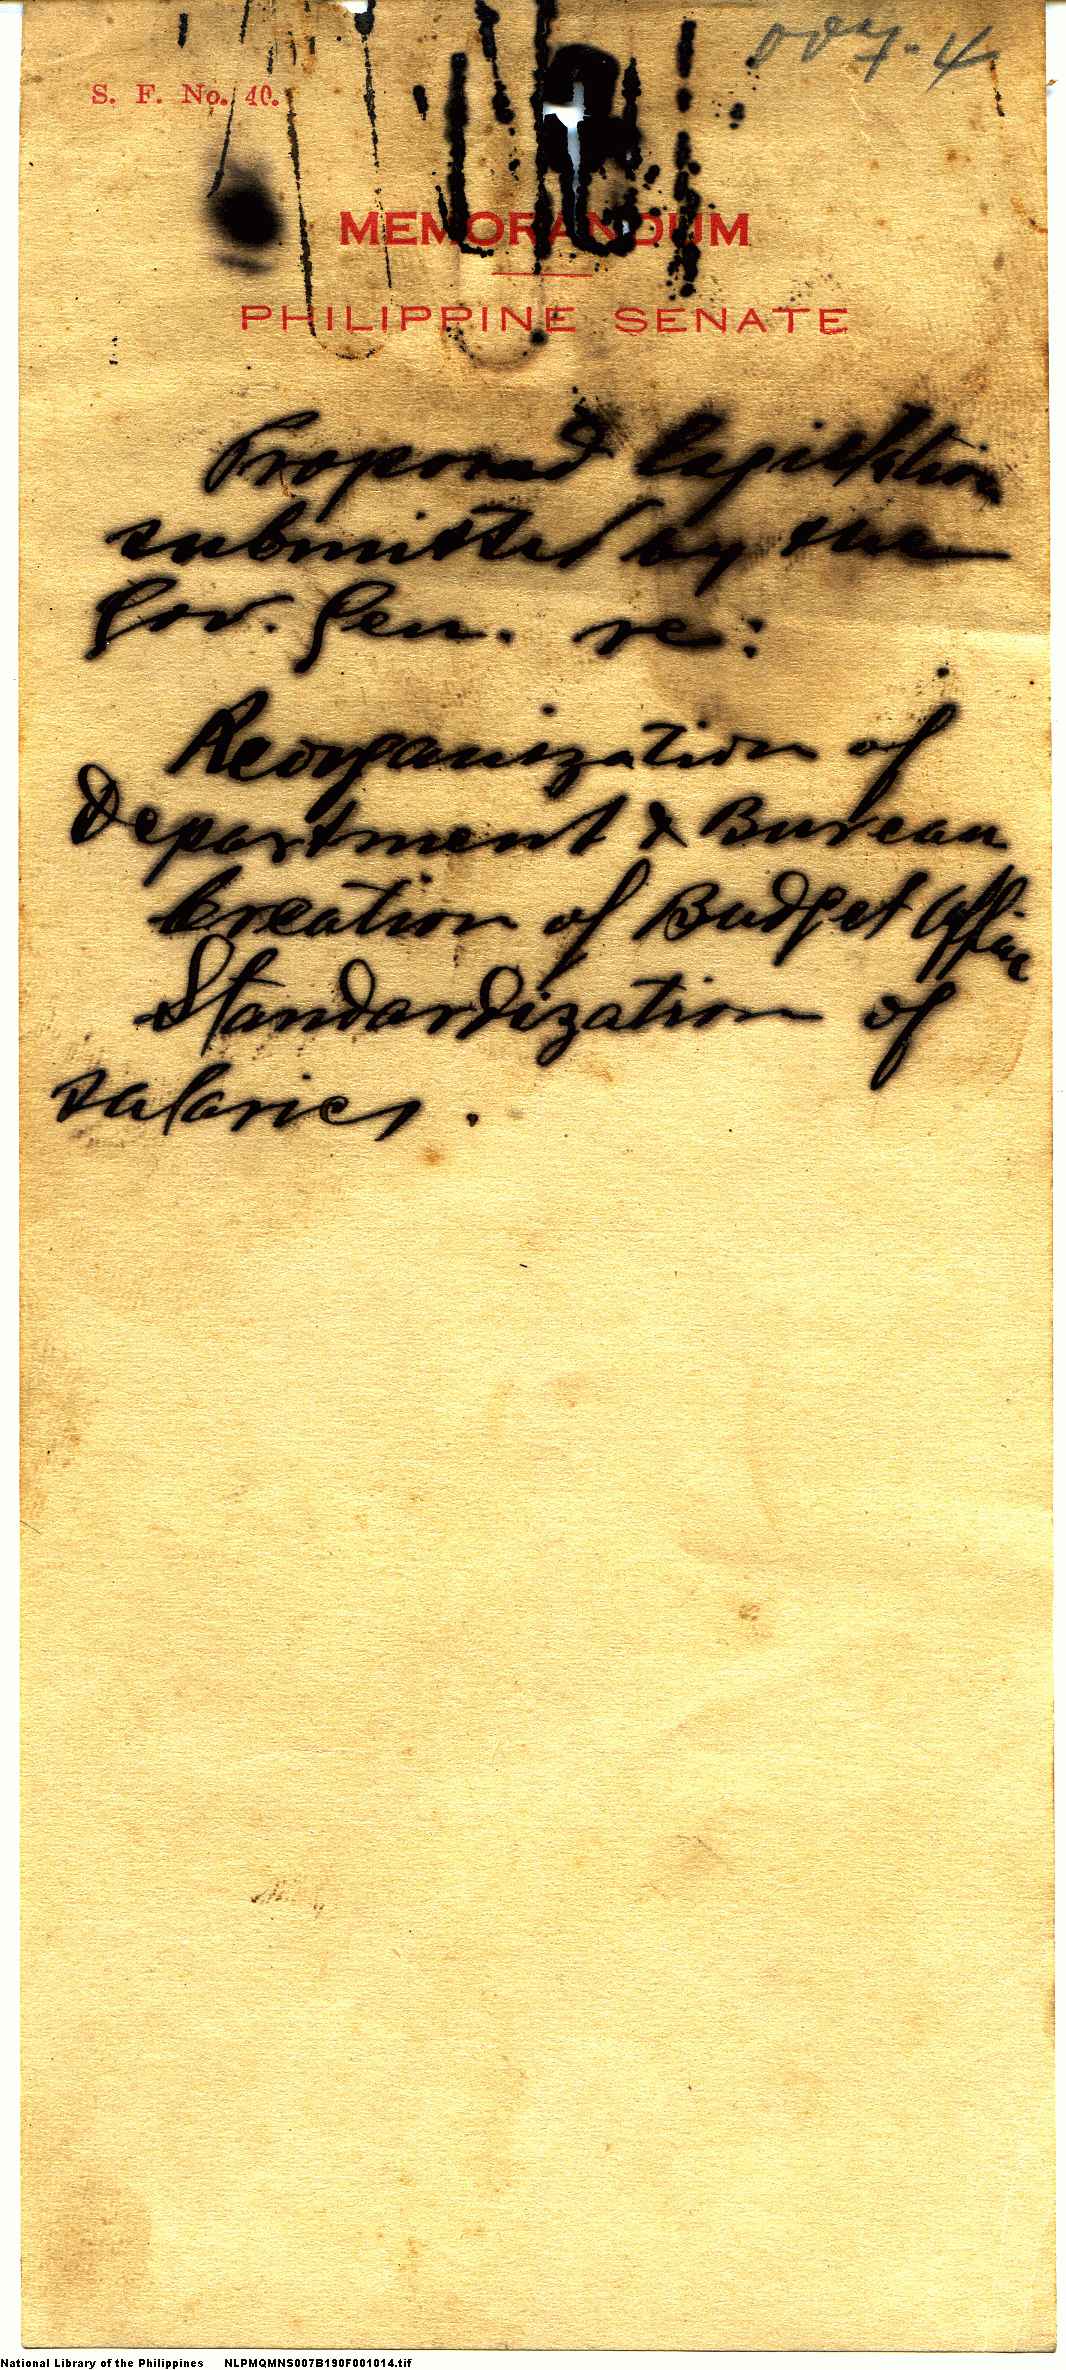 S. F. No. 40.
MEMORANDUM
PHILIPPINE SENATE
Proposed legislation
submitted by the
Gov. Gen. re:
Reorganization of
Department & Bureau
Creation of Budget Office
Standardization of
salaries.
National Library of the Philippines NLPMQMNS007B190F001014.tif